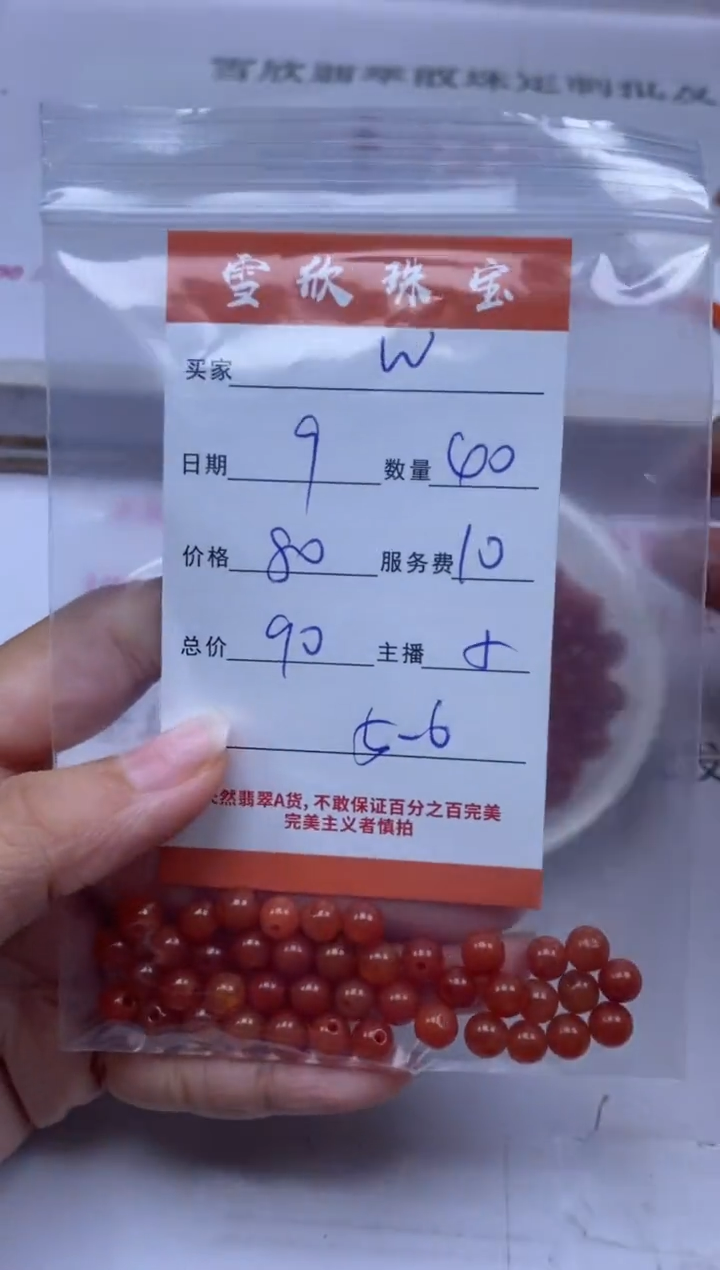 雪欣翡翠散珠定制批发
雪欣珠宝
买家 W
日期 9 数量 60
价格 80 服务费 10
总价 90 主播
5-6
然翡翠A货，不敢保证百分之百完美
完美主义者慎拍